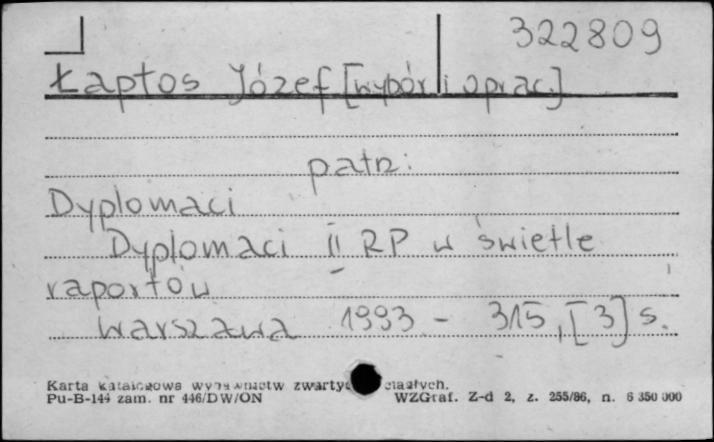 322809
Łaptos Józef [wybór i oprac.]
patrz:
Dyplomaci
Dyplomaci II RP w świetle
raportów
Warszawa 1993 - 315, [3] s.
Karta katalogowa wydawnictw zwartych ciągłych.
Pu-B-144 zam. nr 446/DW/ON WZGraf. Z-d 2, z. 255/86, n. 6 350 000